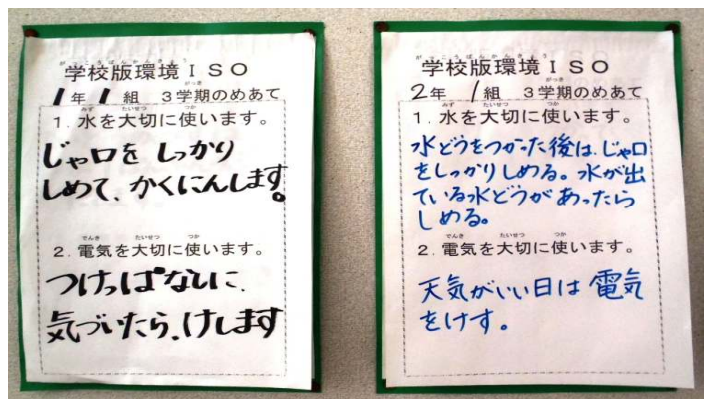 学校版環境ISO
1年1組 3学期のめあて
1.水を大切に使います。
じゃ口をしっかり
しめて、かくにんします。
2.電気を大切に使います。
つけっぱなしに、
気づいたら、けします
学校版環境ISO
2年1組 3学期のめあて
1.水を大切に使います。
水どうをつかった後は、じゃ口
をしっかりしめる。水が出
ている水どうがあったら
しめる。
2.電気を大切に使います。
天気がいい日は電気
をけす。